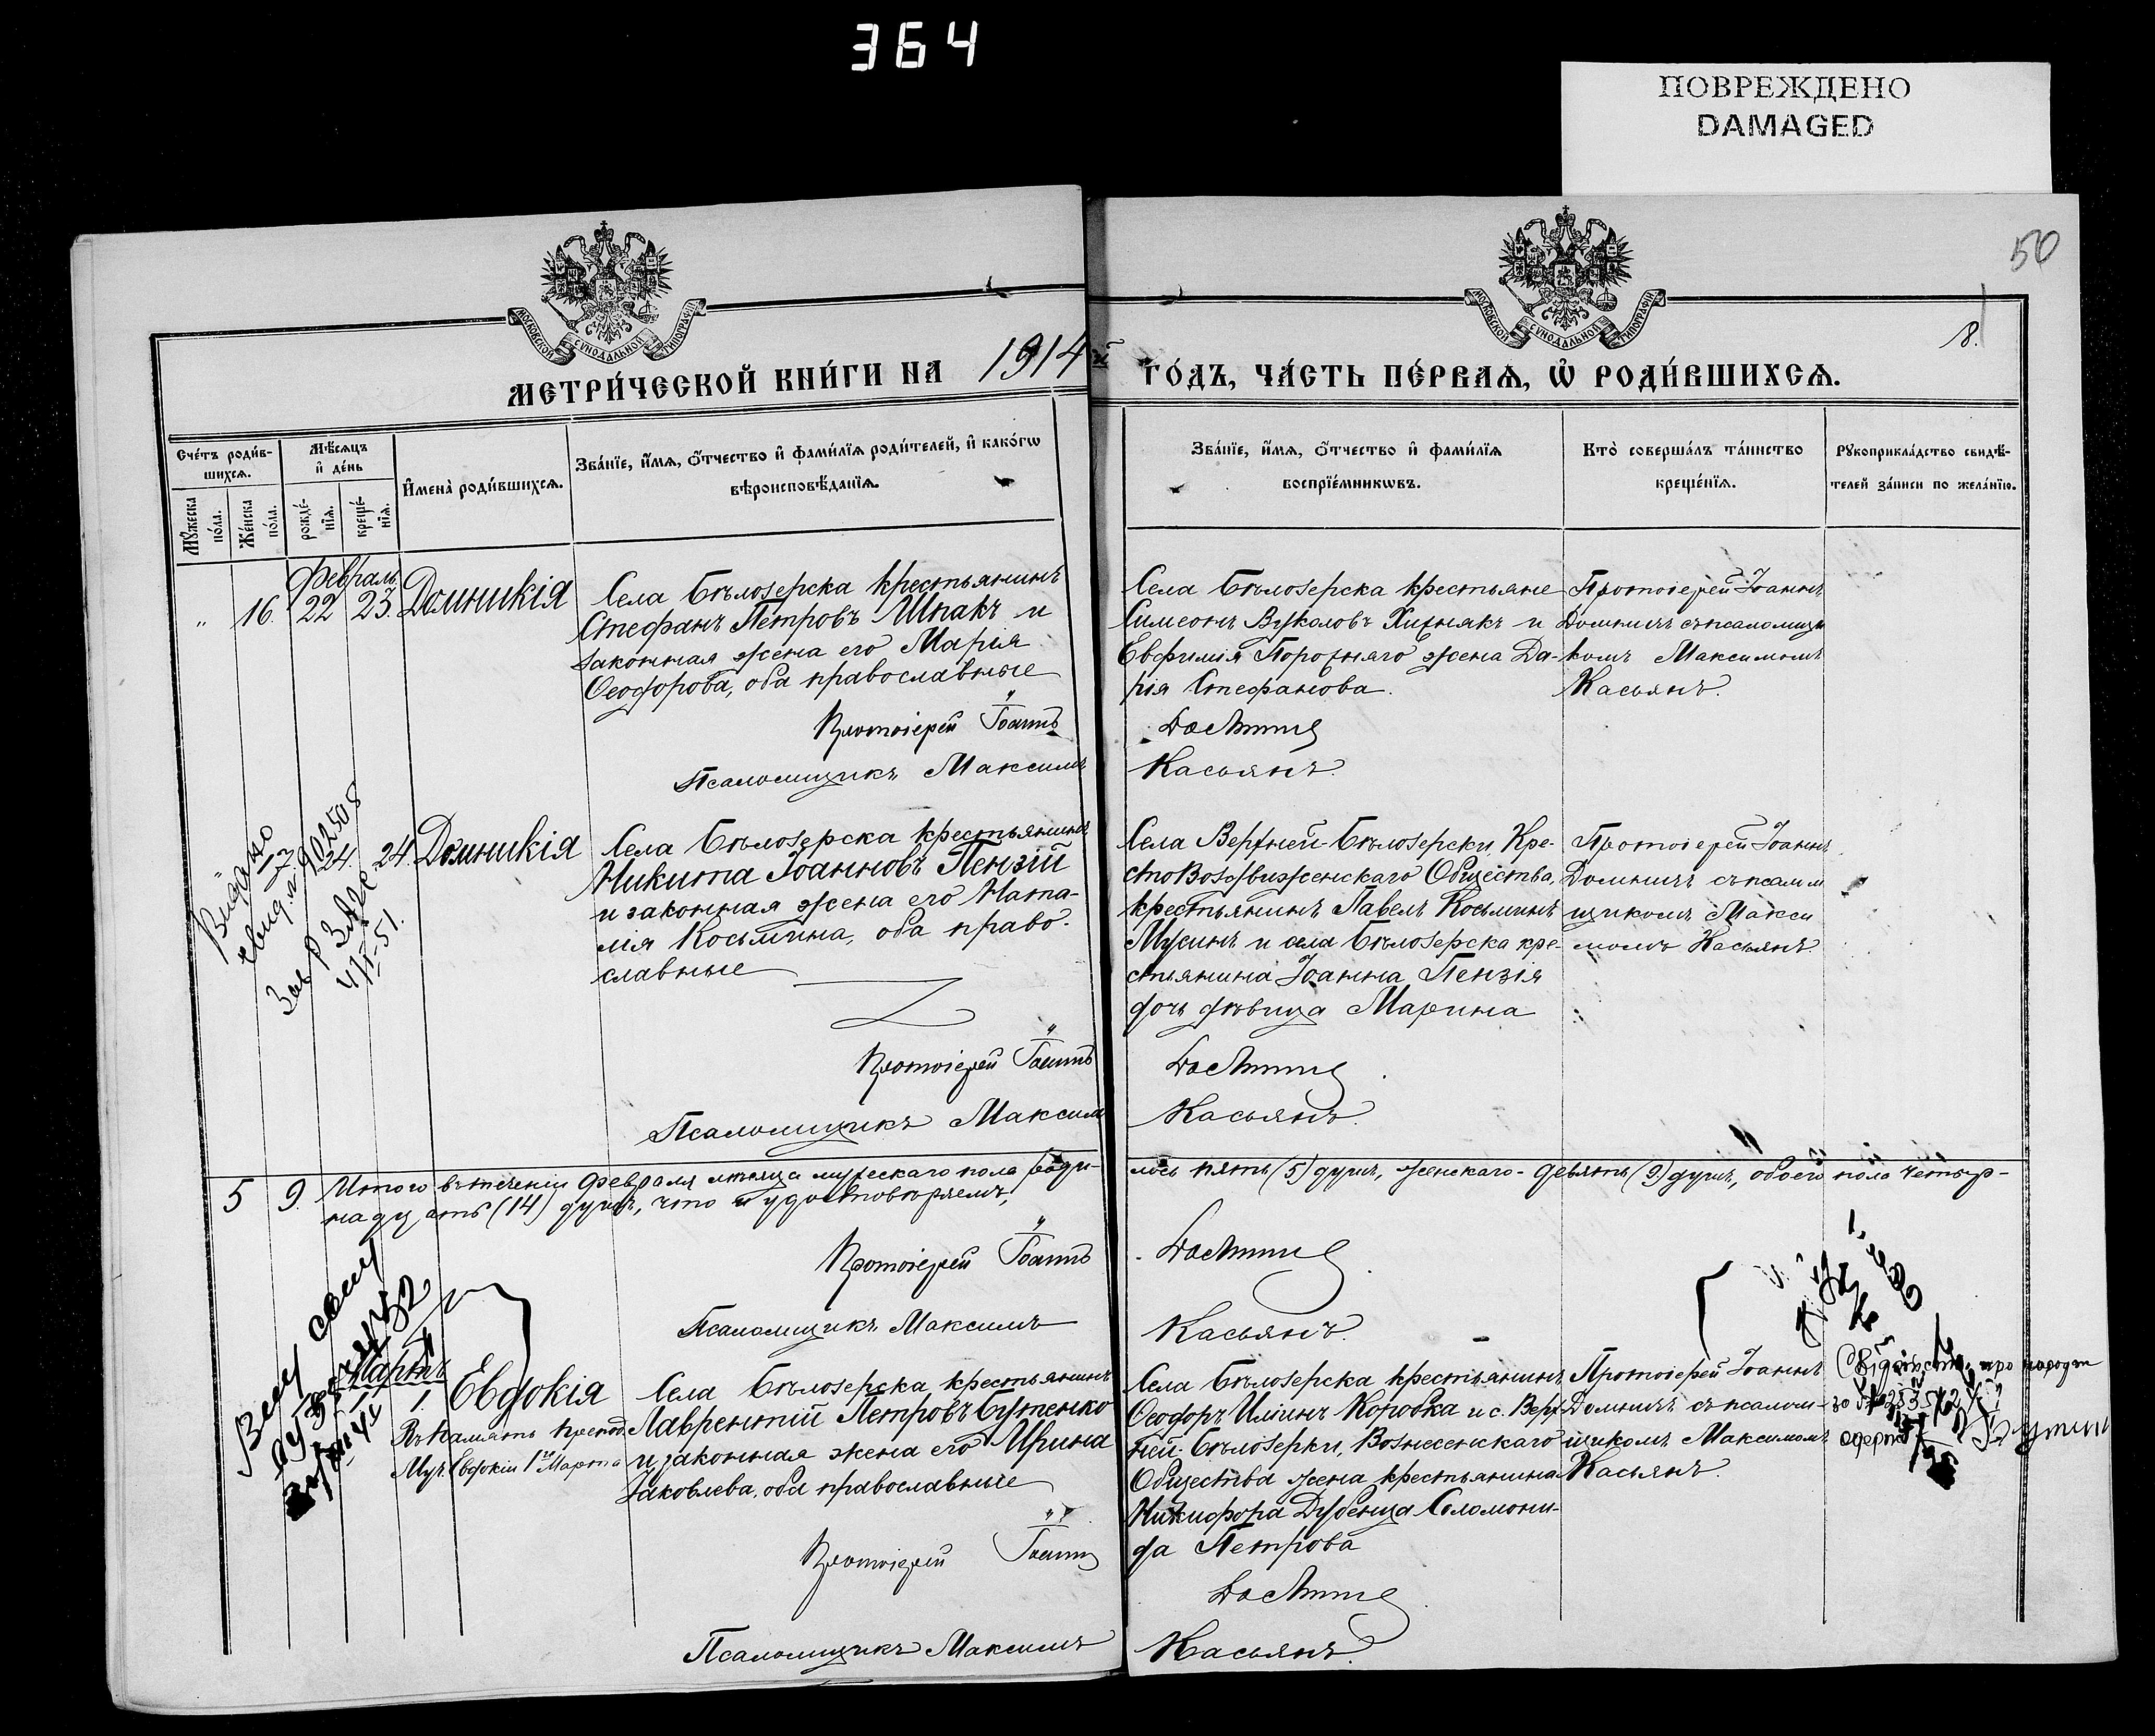 364
ПОВРЕЖДЕНО
DAMAGED
50
8.
МОСКОВСКОЙ СѴНОДАЛЬНОЙ ТИПОГРАФІИ
МОСКОВСКОЙ СѴНОДАЛЬНОЙ ТИПОГРАФІИ
МЕТРИ́ЧЕСКОЙ КНИ́ГИ НА 1914й ГО́ДЪ, ЧА́СТЬ ПЕ́РВАѦ, Ѡ҆ РОДИ́ВШИХСѦ.
Сче́тъ роди́в-
шихсѧ.
Мꙋжеска
по́ла.
Же́нска
по́ла.
Мѣ́сѧцъ
и҆ де́нь
рожде́-
нїѧ.
креще́-
нїѧ.
И҆мена̀ роди́вшихсѧ.
Зва́нїе, и҆́мѧ, ѻ҆́тчество и҆ фами́лїѧ роди́телей, и҆ како́гѡ
вѣроисповѣ́данїѧ.
Зва́нїе, и҆́мѧ, ѻ҆́тчество и҆ фами́лїѧ
воспрїе́мникѡвъ.
Кто̀ соверша́лъ та́инство
креще́нїѧ.
Рꙋкоприкла́дство свидѣ́-
телей за́писи по жела́нїю.
Февраль
" 16. 22 23. Домникія
Села Бѣлозерска крестьянинъ
Стефанъ Петровъ Шпакъ и
законная жена его Марія
Ѳеодорова, оба православные
Протоіерей Іоаннъ
Псаломщикъ Максимъ
Села Бѣлозерска крестьяне
Симеонъ Вуколовъ Хижнякъ и
Евфимія Порожняго жена Да-
рія Стефанова.
Домничъ
Касьянъ.
Протоіерей Іоаннъ
Домничъ съ псаломщи
комъ Максимомъ
Касьянъ.
Видано
" 17. 24. 24. Домникія
4/V-51.
Села Бѣлозерска крестьянинъ
Никита Іоанновъ Пензій
и законная жена его Ната-
лія Косьмина, оба право-
славные
Протоіерей Іоаннъ
Псаломщикъ Максимъ
Села Верхней-Бѣлозерки, Кре-
стоВоздвиженскаго Общества,
крестьянинъ Павелъ Косьминъ
Мусинъ и села Бѣлозерска кре-
стьянина Іоанна Пензія
дочь дѣвица Марина
Домничъ
Касьянъ.
Протоіерей Іоаннъ
Домничъ съ псалом
щикомъ Макси
момъ Касьянъ.
5 9. Итого въ теченіи Февраля мѣсяца мужескаго пола роди-
лось пять (5) душъ, женскаго - девять (9) душъ, обоего пола четыр-
надцать (14) душъ, что и удостовѣряемъ,
Протоіерей Іоаннъ
Домничъ
Псаломщикъ Максимъ
Касьянъ.
Мартъ
1. Евдокія
Въ память препод.
Муч. Евдокіи 1го Марта
Села Бѣлозерска крестьянинъ
Лаврентій Петровъ Бутенко
и законная жена его Ирина
Іаковлева, оба православные
Протоіерей Іоаннъ
Псаломщикъ Максимъ
Села Бѣлозерска крестьянинъ
Ѳеодоръ Иліинъ Коробка и с. Верх-
ней-Бѣлозерки, Вознесенскаго
Общества жена крестьянина
Никифора Дубенца Соломони-
да Петрова
Домничъ
Касьянъ.
Протоіерей Іоаннъ
Домничъ съ псалом-
щикомъ Максимомъ
Касьянъ.